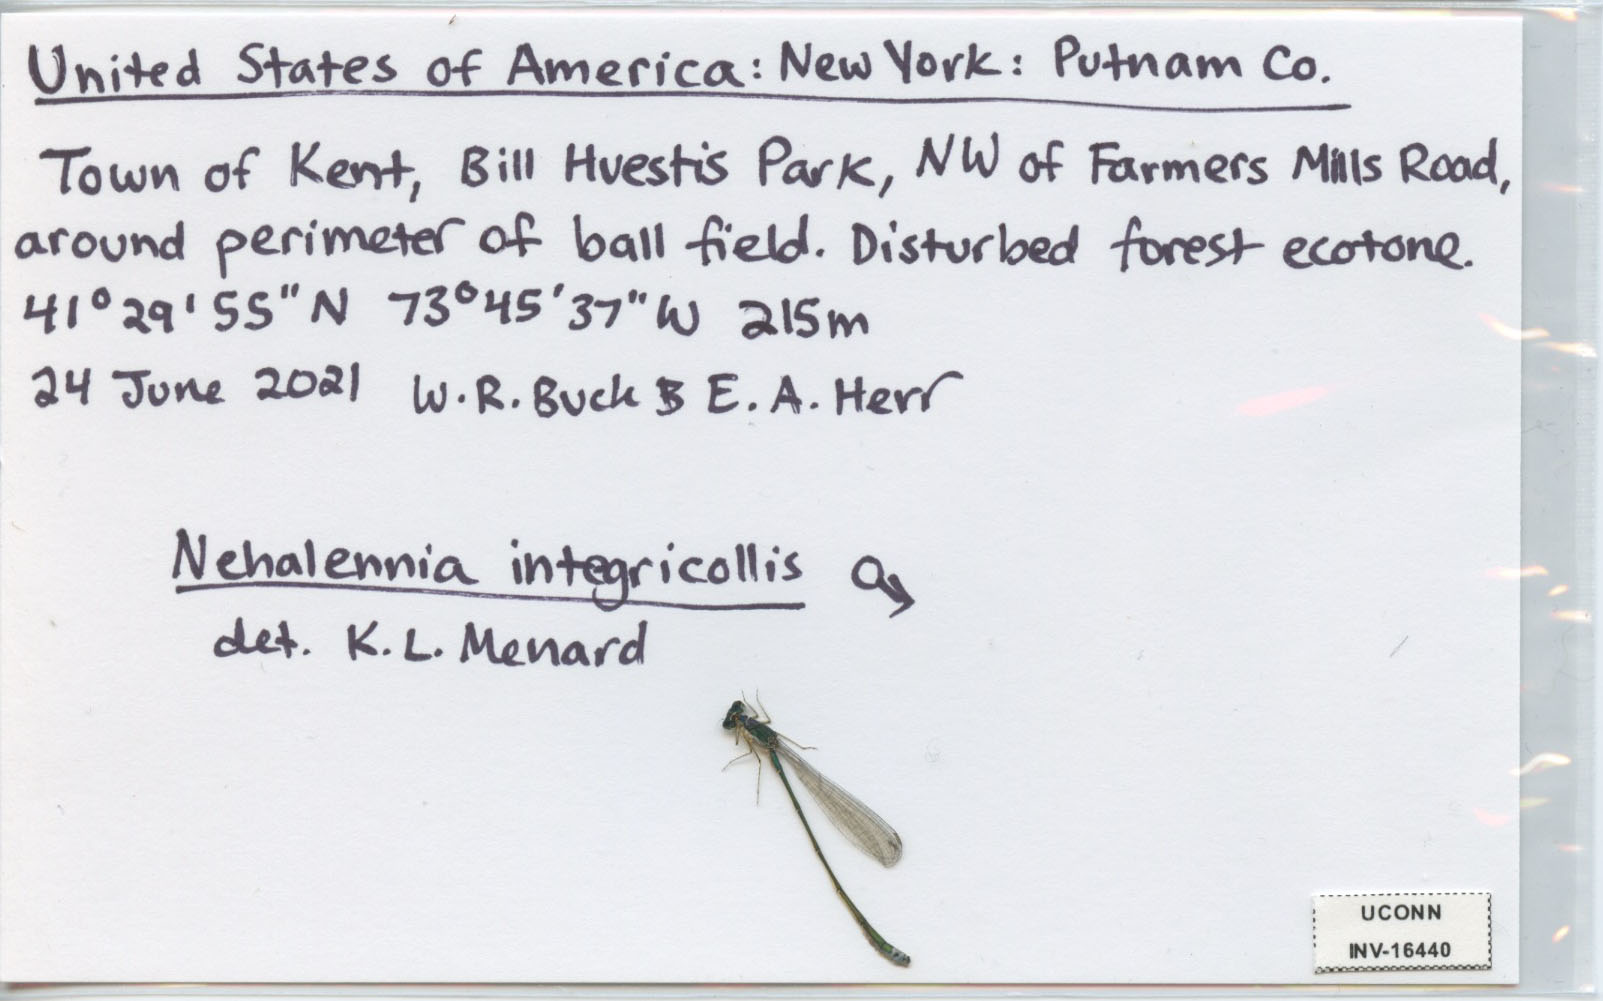 United States of America: New York: Putnam Co.
Town of Kent, Bill Huestis Park, NW of Farmers Mills Road,
around perimeter of ball field. Disturbed forest ecotone.
41°29'55"N 73°45'37"W 215m
24 June 2021 W.R. Buck & E. A. Herr
Nehalennia integricollis ♂
det. K.L. Menard
UCONN
INV-16440